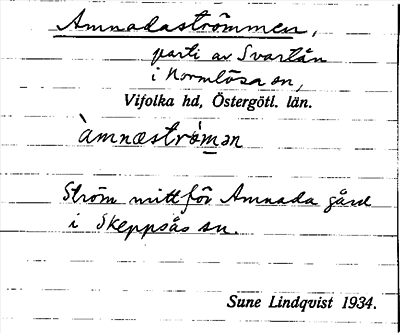 Amnadaströmmen,
parti av Svartån
i Normlösa sn,
Vifolka hd, Östergötl. län.
àmnæstró̀mən
Ström mitt för Amnada gård
i Skeppsås sn.
Sune Lindqvist 1934.